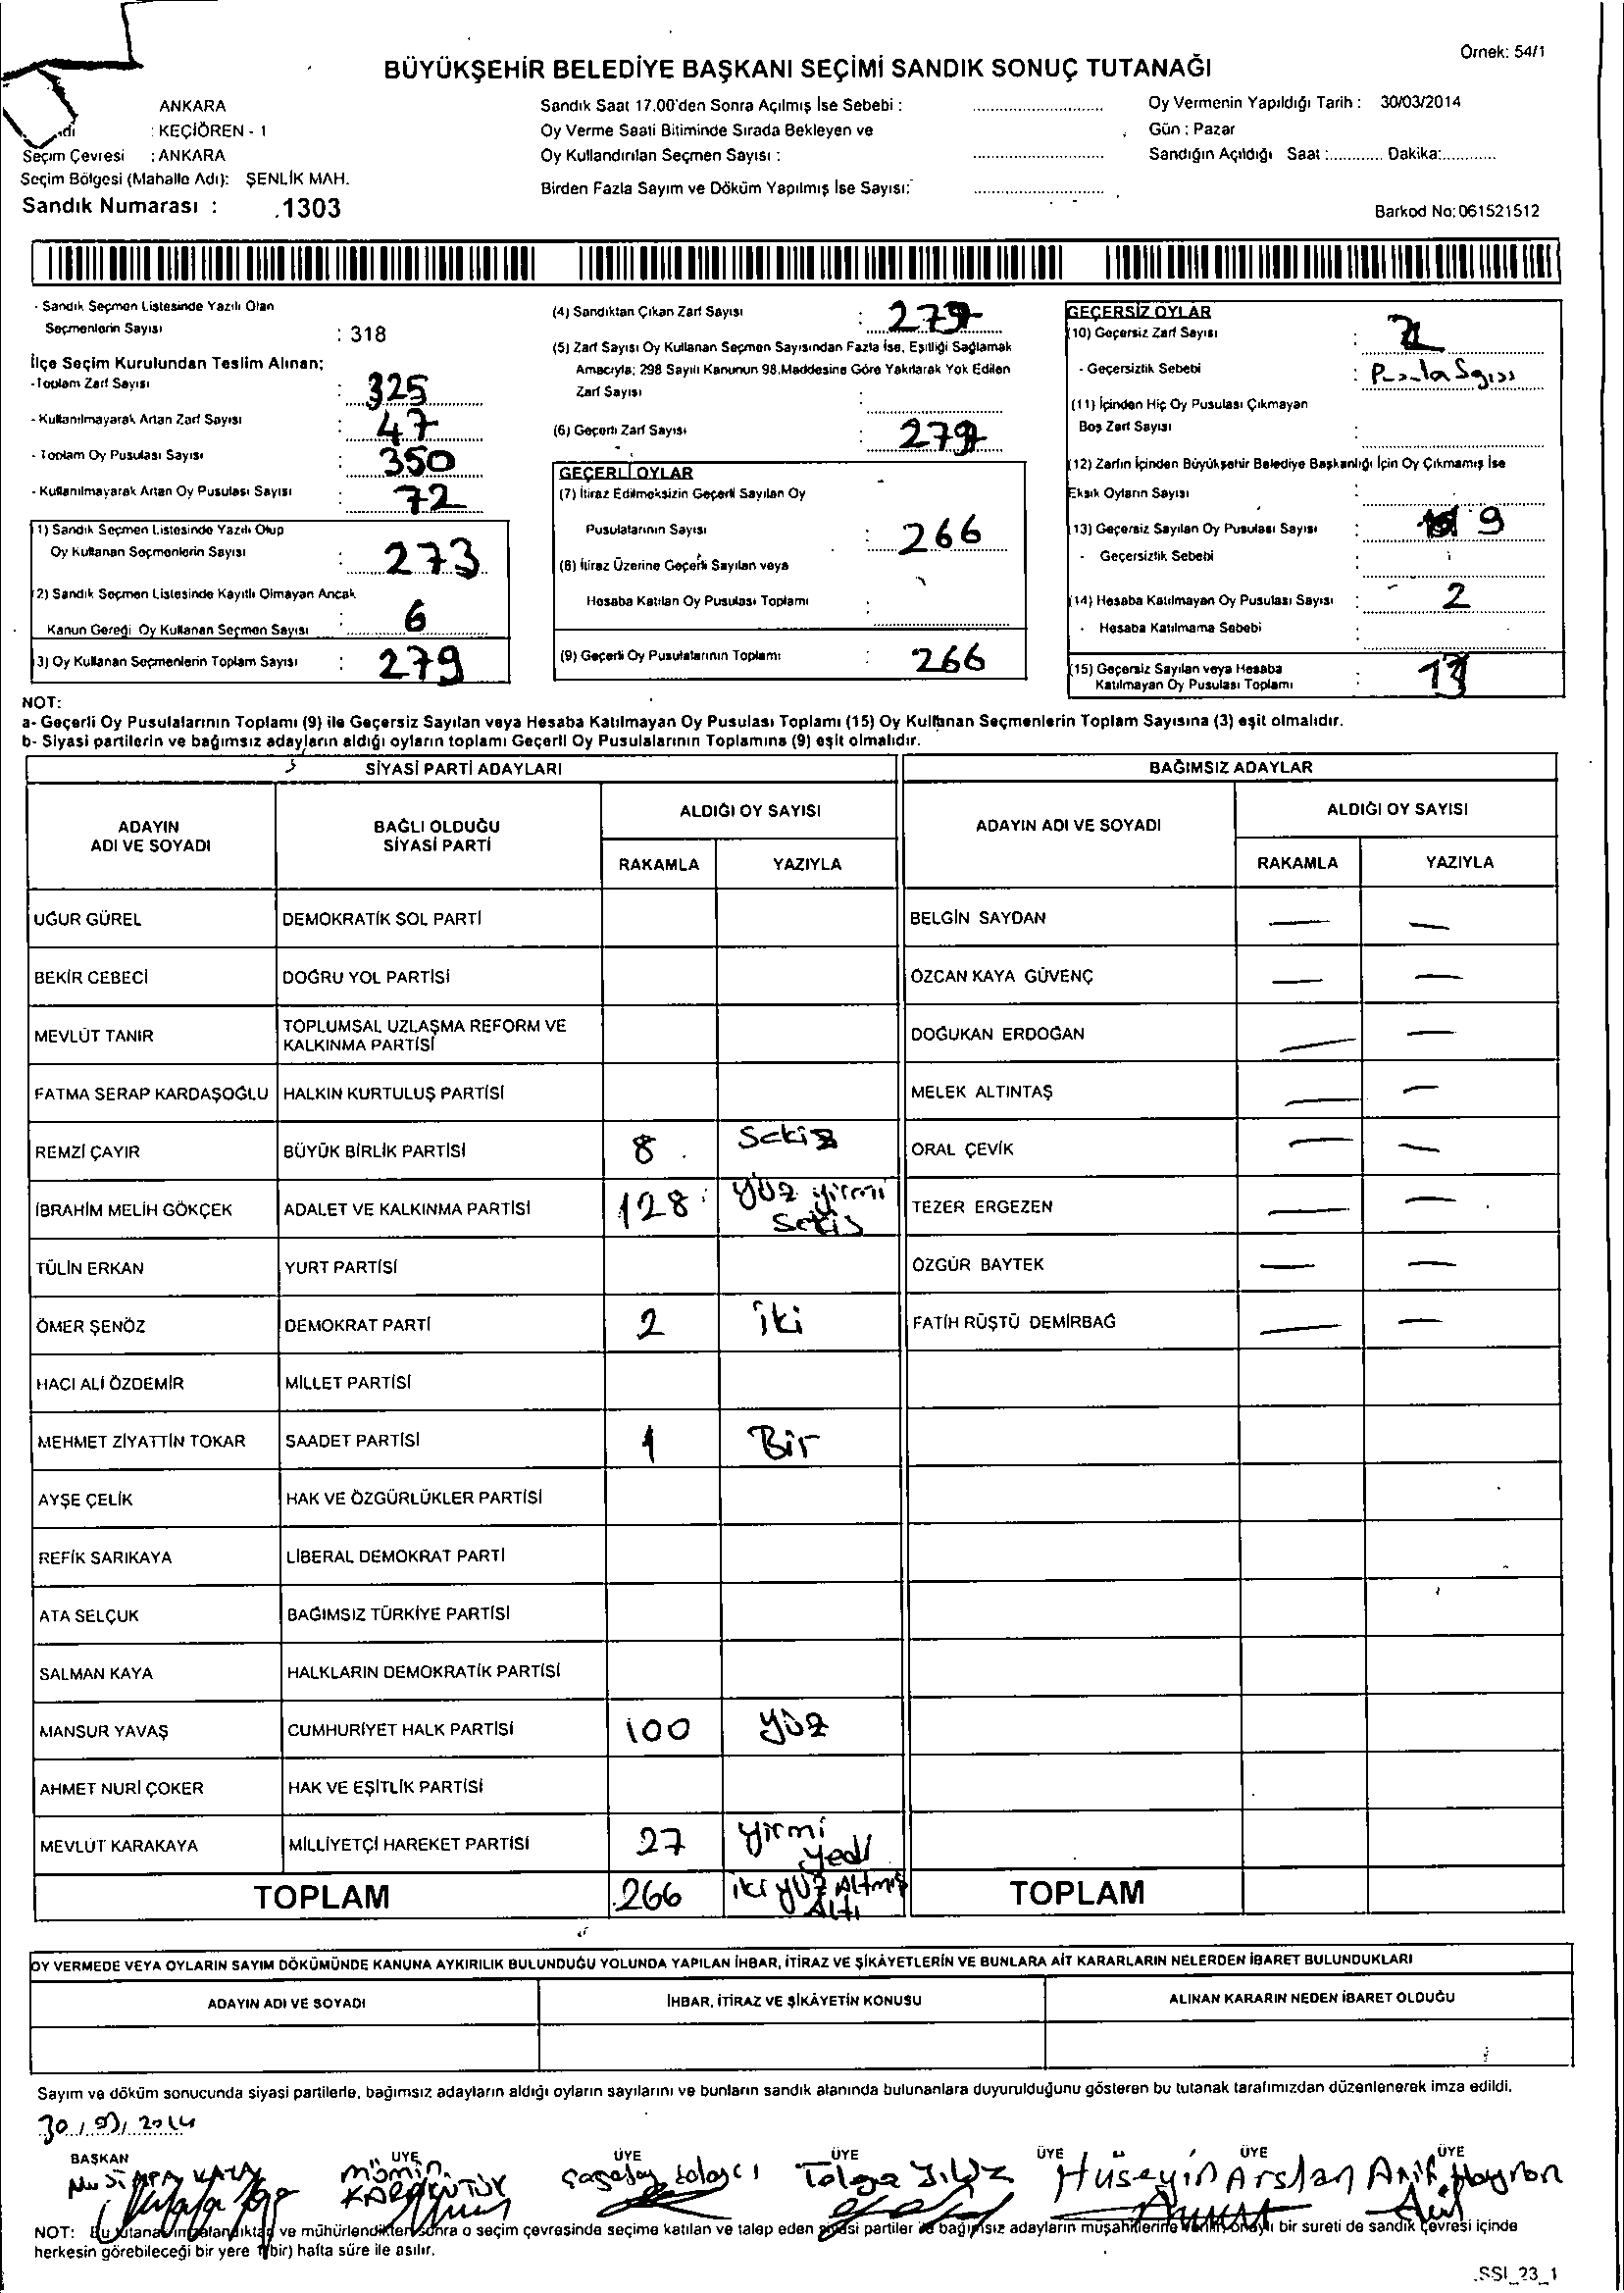 Örnek: 54/1
BÜYÜKŞEHİR BELEDİYE BAŞKANI SEÇİMİ SANDIK SONUÇ TUTANAĞI
ANKARA
: KEÇİÖREN - 1
Seçim Çevresi : ANKARA
Seçim Bölgesi (Mahalle Adı): ŞENLİK MAH.
Sandık Numarası : 1303
Sandık Saat 17.00'den Sonra Açılmış İse Sebebi :
Oy Verme Saati Bitiminde Sırada Bekleyen ve
Oy Kullandırılan Seçmen Sayısı :
Birden Fazla Sayım ve Döküm Yapılmış İse Sayısı:
Oy Vermenin Yapıldığı Tarih : 30/03/2014
Gün : Pazar
Sandığın Açıldığı Saat :............ Dakika:............
Barkod No: 061521512
- Sandık Seçmen Listesinde Yazılı Olan
Seçmenlerin Sayısı : 318
İlçe Seçim Kurulundan Teslim Alınan;
- Toplam Zarf Sayısı : 325
- Kullanılmayarak Artan Zarf Sayısı : 47
- Toplam Oy Pusulası Sayısı : 350
- Kullanılmayarak Artan Oy Pusulası Sayısı : 72
(1) Sandık Seçmen Listesinde Yazılı Olup
Oy Kullanan Seçmenlerin Sayısı : 273
(2) Sandık Seçmen Listesinde Kayıtlı Olmayan Ancak
Kanun Gereği Oy Kullanan Seçmen Sayısı : 6
(3) Oy Kullanan Seçmenlerin Toplam Sayısı : 279
(4) Sandıktan Çıkan Zarf Sayısı : 279
(5) Zarf Sayısı Oy Kullanan Seçmen Sayısından Fazla İse, Eşitliği Sağlamak
Amacıyla; 298 Sayılı Kanunun 98.Maddesine Göre Yakılarak Yok Edilen
Zarf Sayısı :
(6) Geçerli Zarf Sayısı : 277
GEÇERLİ OYLAR
(7) İtiraz Edilmeksizin Geçerli Sayılan Oy
Pusulalarının Sayısı : 266
(8) İtiraz Üzerine Geçerli Sayılan veya
Hesaba Katılan Oy Pusulası Toplamı :
(9) Geçerli Oy Pusulalarının Toplamı : 266
GEÇERSİZ OYLAR
(10) Geçersiz Zarf Sayısı : 2
- Geçersizlik Sebebi :
(11) İçinden Hiç Oy Pusulası Çıkmayan
Boş Zarf Sayısı :
(12) Zarfın İçinden Büyükşehir Belediye Başkanlığı İçin Oy Çıkmamış İse
Eksik Oyların Sayısı :
(13) Geçersiz Sayılan Oy Pusulası Sayısı : 9
- Geçersizlik Sebebi :
(14) Hesaba Katılmayan Oy Pusulası Sayısı : 2
- Hesaba Katılmama Sebebi :
(15) Geçersiz Sayılan veya Hesaba
Katılmayan Oy Pusulası Toplamı : 13
NOT:
a- Geçerli Oy Pusulalarının Toplamı (9) ile Geçersiz Sayılan veya Hesaba Katılmayan Oy Pusulası Toplamı (15) Oy Kullanan Seçmenlerin Toplam Sayısına (3) eşit olmalıdır.
b- Siyasi partilerin ve bağımsız adayların aldığı oyların toplamı Geçerli Oy Pusulalarının Toplamına (9) eşit olmalıdır.
SİYASİ PARTİ ADAYLARI BAĞIMSIZ ADAYLAR
ADAYIN ADI VE SOYADI BAĞLI OLDUĞU SİYASİ PARTİ ALDIĞI OY SAYISI ADAYIN ADI VE SOYADI ALDIĞI OY SAYISI
RAKAMLA YAZIYLA RAKAMLA YAZIYLA
UĞUR GÜREL DEMOKRATİK SOL PARTİ BELGİN SAYDAN — —
BEKİR CEBECİ DOĞRU YOL PARTİSİ ÖZCAN KAYA GÜVENÇ — —
MEVLÜT TANIR TOPLUMSAL UZLAŞMA REFORM VE KALKINMA PARTİSİ DOĞUKAN ERDOĞAN — —
FATMA SERAP KARDAŞOĞLU HALKIN KURTULUŞ PARTİSİ MELEK ALTINTAŞ — —
REMZİ ÇAYIR BÜYÜK BİRLİK PARTİSİ 8 Sekiz ORAL ÇEVİK — —
İBRAHİM MELİH GÖKÇEK ADALET VE KALKINMA PARTİSİ 128 yüz yirmi Sekiz TEZER ERGEZEN — —
TÜLİN ERKAN YURT PARTİSİ ÖZGÜR BAYTEK — —
ÖMER ŞENÖZ DEMOKRAT PARTİ 2 iki FATİH RÜŞTÜ DEMİRBAĞ — —
HACI ALİ ÖZDEMİR MİLLET PARTİSİ
MEHMET ZİYATTİN TOKAR SAADET PARTİSİ 1 Bir
AYŞE ÇELİK HAK VE ÖZGÜRLÜKLER PARTİSİ
REFİK SARIKAYA LİBERAL DEMOKRAT PARTİ
ATA SELÇUK BAĞIMSIZ TÜRKİYE PARTİSİ
SALMAN KAYA HALKLARIN DEMOKRATİK PARTİSİ
MANSUR YAVAŞ CUMHURİYET HALK PARTİSİ 100 yüz
AHMET NURİ ÇOKER HAK VE EŞİTLİK PARTİSİ
MEVLÜT KARAKAYA MİLLİYETÇİ HAREKET PARTİSİ 27 yirmi yedi
TOPLAM 266 iki yüz Altmış Altı TOPLAM
OY VERMEDE VEYA OYLARIN SAYIM DÖKÜMÜNDE KANUNA AYKIRILIK BULUNDUĞU YOLUNDA YAPILAN İHBAR, İTİRAZ VE ŞİKÂYETLERİN VE BUNLARA AİT KARARLARIN NELERDEN İBARET BULUNDUKLARI
ADAYIN ADI VE SOYADI İHBAR, İTİRAZ VE ŞİKÂYETİN KONUSU ALINAN KARARIN NEDEN İBARET OLDUĞU
Sayım ve döküm sonucunda siyasi partilerle, bağımsız adayların aldığı oyların sayılarını ve bunların sandık alanında bulunanlara duyurulduğunu gösteren bu tutanak tarafımızdan düzenlenerek imza edildi.
30/03/2014
BAŞKAN ÜYE ÜYE ÜYE ÜYE ÜYE ÜYE
Mümin Çağatay Tolga Yıldız Hüseyin Arslan Arif
NOT: Bu tutanak imzalandıktan ve mühürlendikten sonra o seçim çevresinde seçime katılan ve talep eden siyasi partiler ile bağımsız adayların müşahitlerine verilir, onaylı bir sureti de sandık çevresi içinde
herkesin görebileceği bir yere 1(bir) hafta süre ile asılır.
SSI_23_1